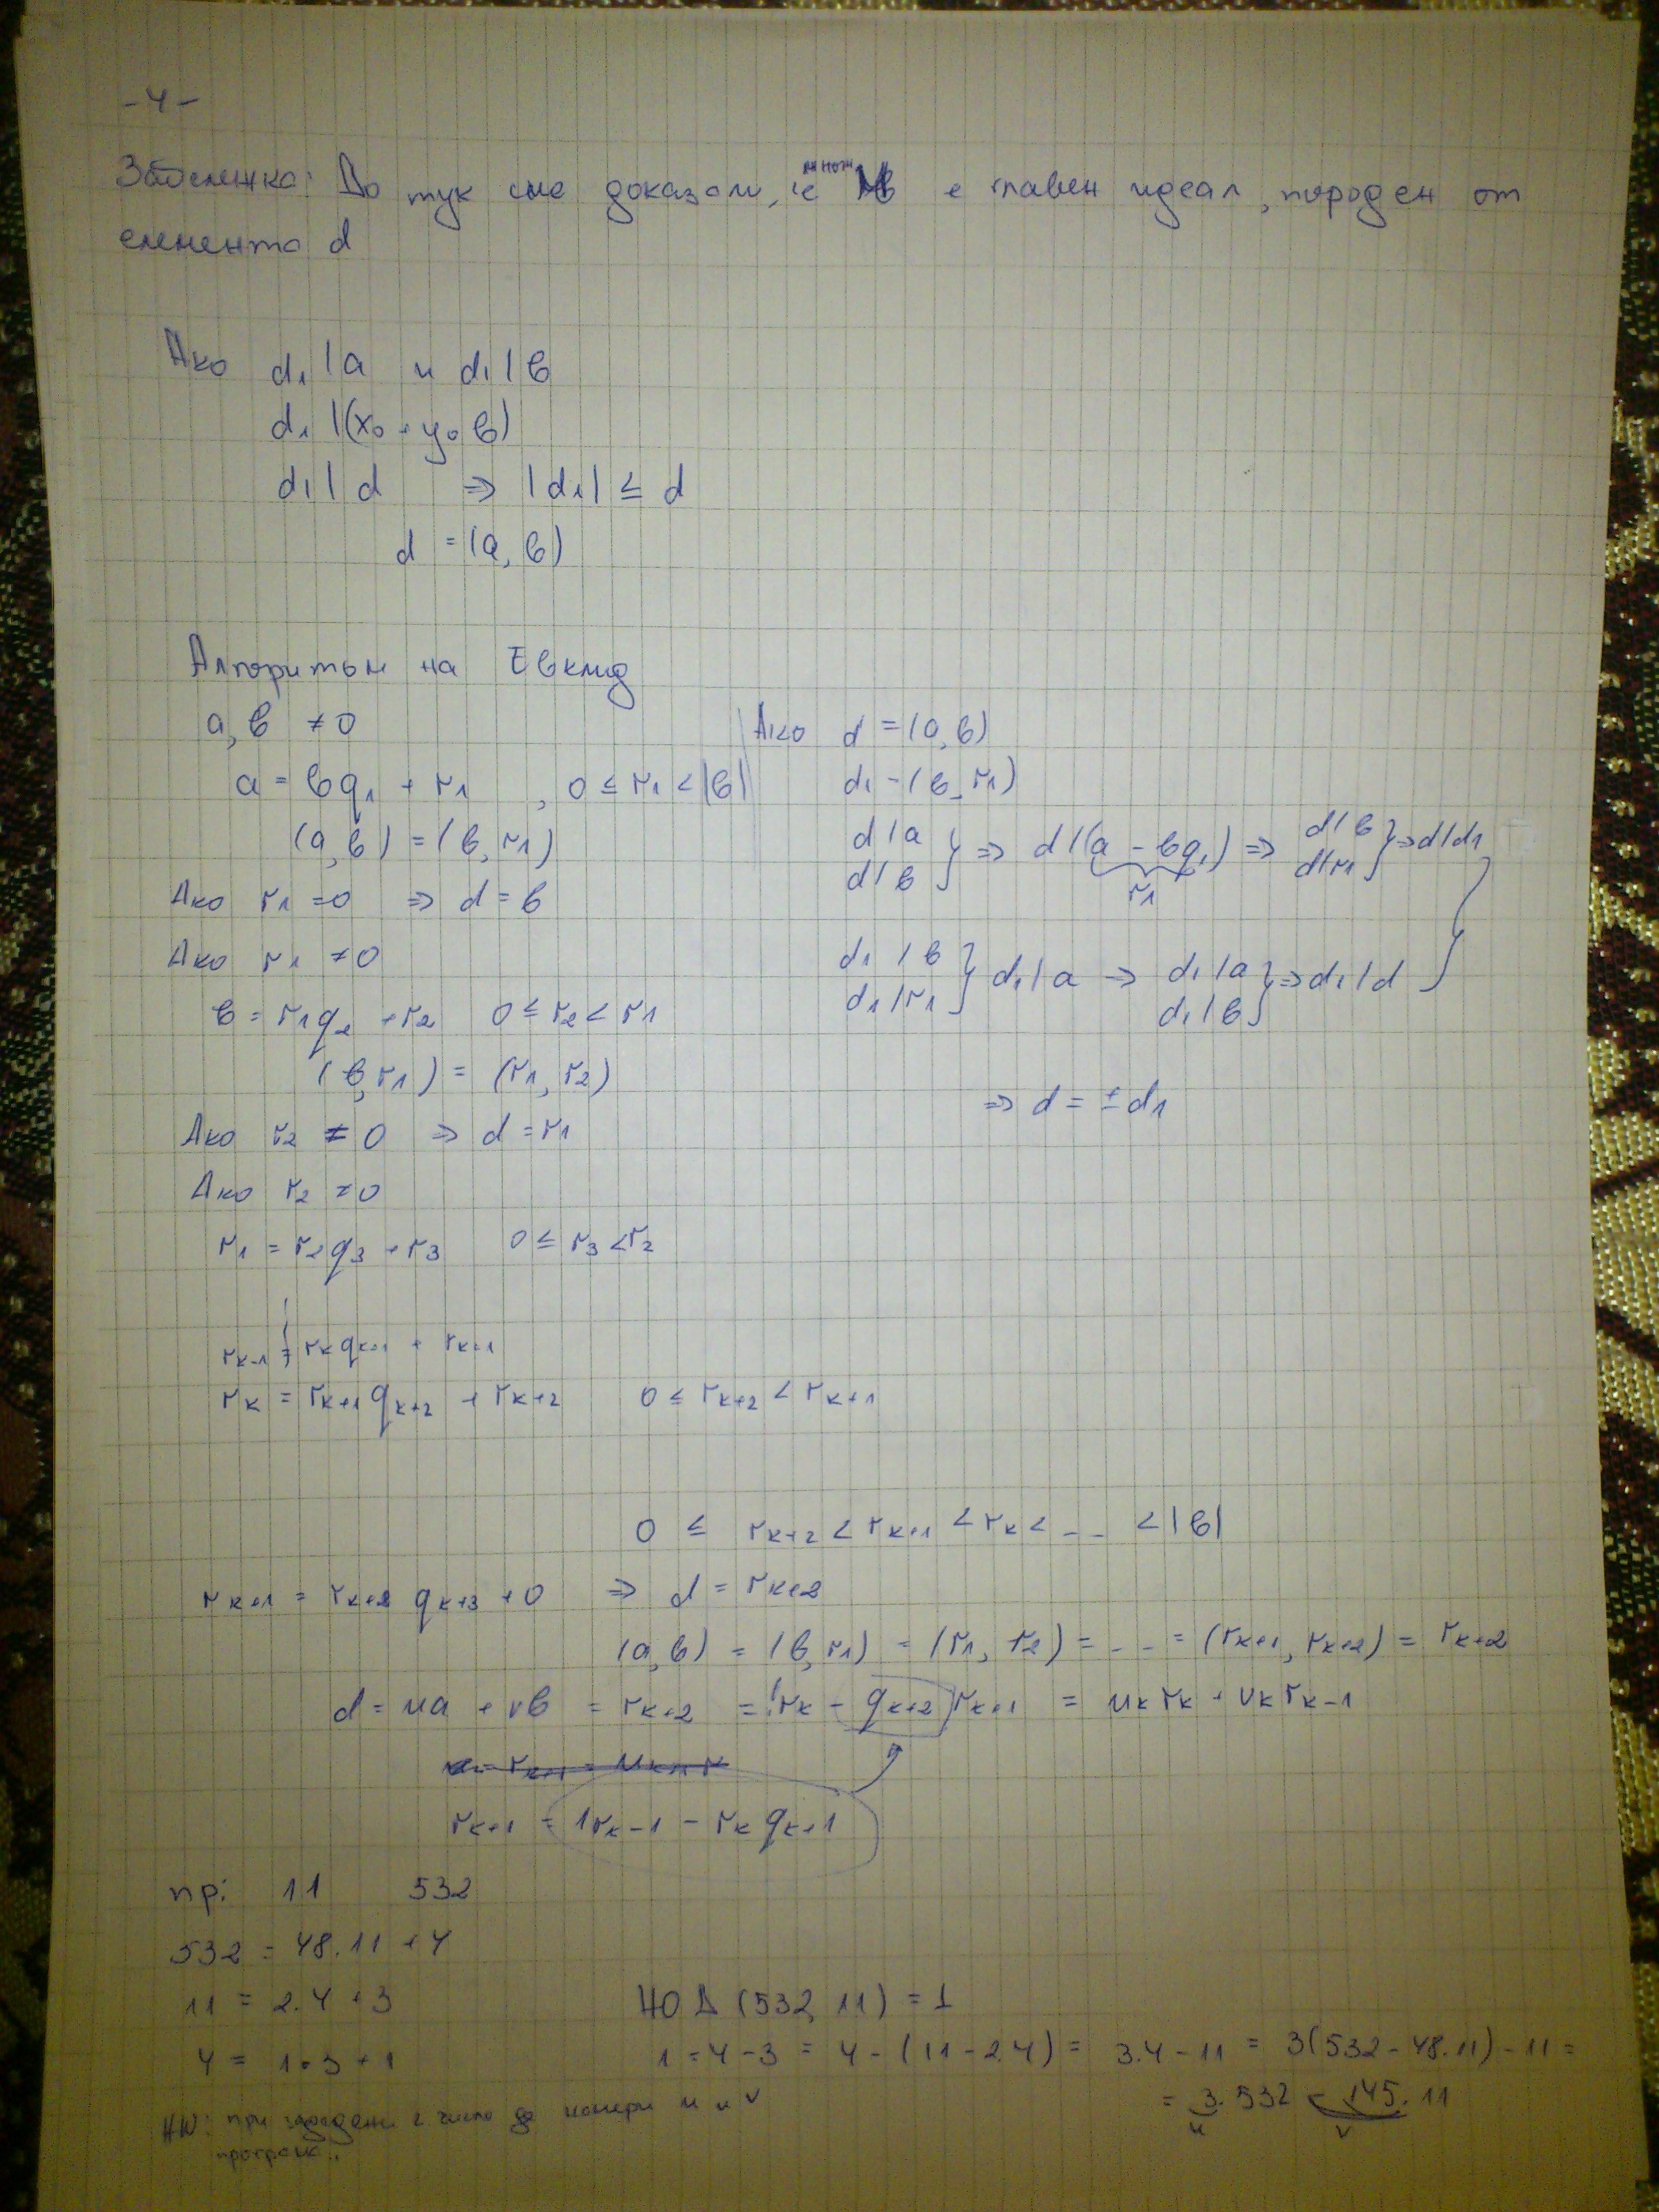 -4-
Забележка: До тук сме доказали, че множ M е главен идеал, породен от
елемента d
Ако d₁ | a и d₁ | b
d₁ | (x₀ + y₀ b)
d₁ | d ⇒ |d₁| ≤ d
d = (a, b)
Алгоритъм на Евклид
a, b ≠ 0
a = bq₁ + r₁ , 0 ≤ r₁ < |b|
(a, b) = (b, r₁)
Ако r₁ = 0 ⇒ d = b
Ако r₁ ≠ 0
b = r₁q₂ + r₂ 0 ≤ r₂ < r₁
(b, r₁) = (r₁, r₂)
Ако r₂ = 0 ⇒ d = r₁
Ако r₂ ≠ 0
r₁ = r₂q₃ + r₃ 0 ≤ r₃ < r₂
Ако d = (a, b)
d₁ = (b, r₁)
d | a
d | b } ⇒ d | (a - bq₁) ⇒ d | b
d | r₁ } ⇒ d | d₁
r₁
d₁ | b
d₁ | r₁ } d₁ | a ⇒ d₁ | a
d₁ | b } ⇒ d₁ | d
⇒ d = ± d₁
rₖ₋₁ = rₖ qₖ₊₁ + rₖ₊₁
rₖ = rₖ₊₁ qₖ₊₂ + rₖ₊₂ 0 ≤ rₖ₊₂ < rₖ₊₁
0 ≤ rₖ₊₂ < rₖ₊₁ < rₖ < -- < |b|
rₖ₊₁ = rₖ₊₂ qₖ₊₃ + 0 ⇒ d = rₖ₊₂
(a, b) = (b, r₁) = (r₁, r₂) = -- = (rₖ₊₁, rₖ₊₂) = rₖ₊₂
d = ua + vb = rₖ₊₂ = 1rₖ - qₖ₊₂ rₖ₊₁ = uₖ rₖ + vₖ rₖ₋₁
rₖ₊₁ = 1rₖ₋₁ - rₖ qₖ₊₁
пр: 11 532
532 = 48.11 + 4
11 = 2.4 + 3
4 = 1.3 + 1
НОД (532, 11) = 1
1 = 4 - 3 = 4 - (11 - 2.4) = 3.4 - 11 = 3(532 - 48.11) - 11 =
= 3.532 - 145.11
u v
HW: при зададени 2 числа да намери u и v
програма